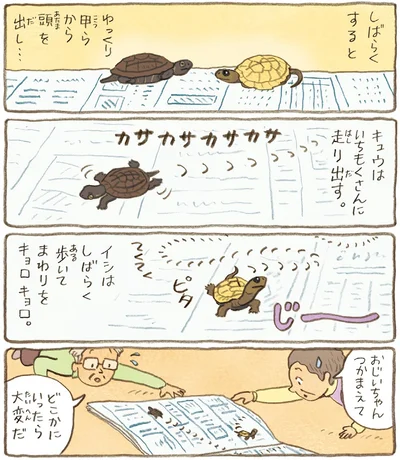 しばらく
すると
ゆっくり
甲らから
頭を
出し…
キュウは
いちもくさんに
走り出す。
カサカサカサカサ
イシは
しばらく
歩いて
まわりを
キョロキョロ。
てくてく
ピタ
じーー
おじいちゃん
つかまえて
どこかに
いったら
大変だ